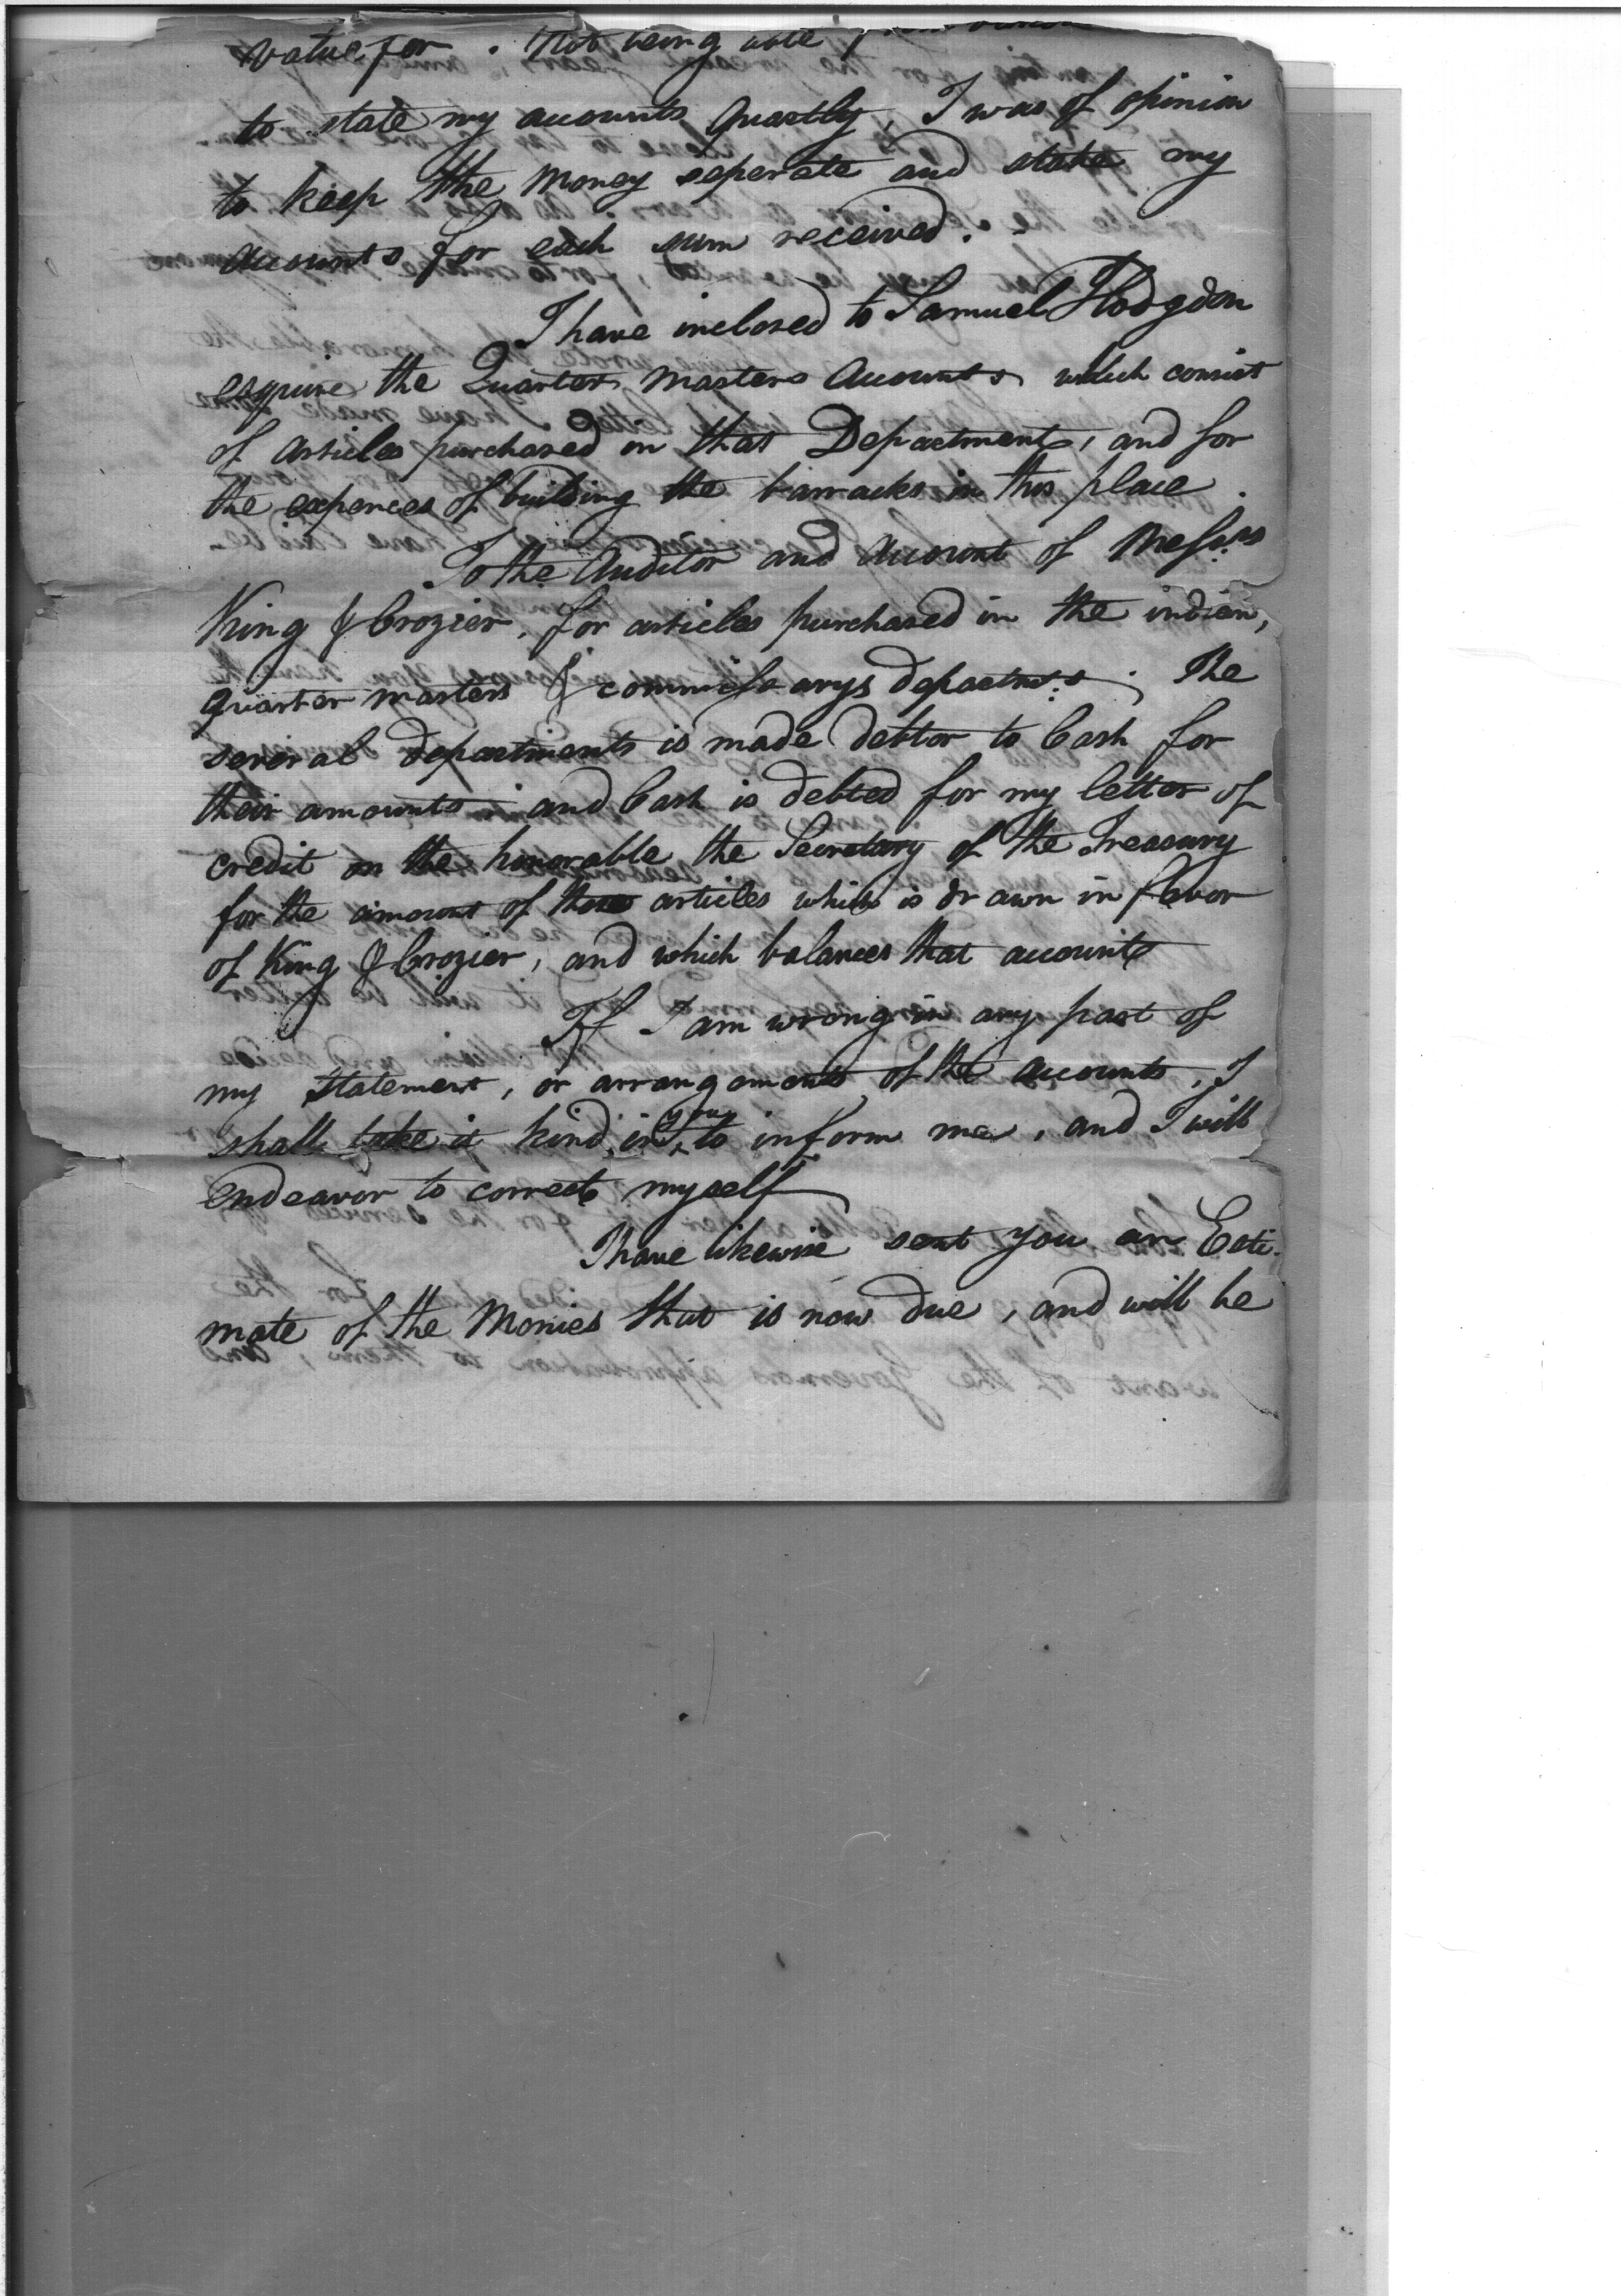 value for . Not being able
to state my accounts Quartly, I was of opinion
to keep the Money seperate and state my
accounts for each sum received.
I have inclosed to Samuel Hodgdon
esquire the Quarter Masters Accounts which consist
of articles purchased on that Department, and for
the expences of building the barracks in this place.
To the Auditor and account of Messrs
King & Crozier, for articles purchased in the indian,
quarter masters & commissarys departmts. The
several departments is made debtor to Cash for
their amounts and Cash is debted for my letter of
credit on the honorable the Secretary of the Treasury
for the amount of those articles which is drawn in favor
of King & Crozier, and which balances that account
If I am wrong in any part of
my statement, or arrangements of the accounts, I
shall take it kind, in you to inform me, and I will
endeavor to correct myself
I have likewise sent you an Esti-
mate of the Monies that is now due, and will be